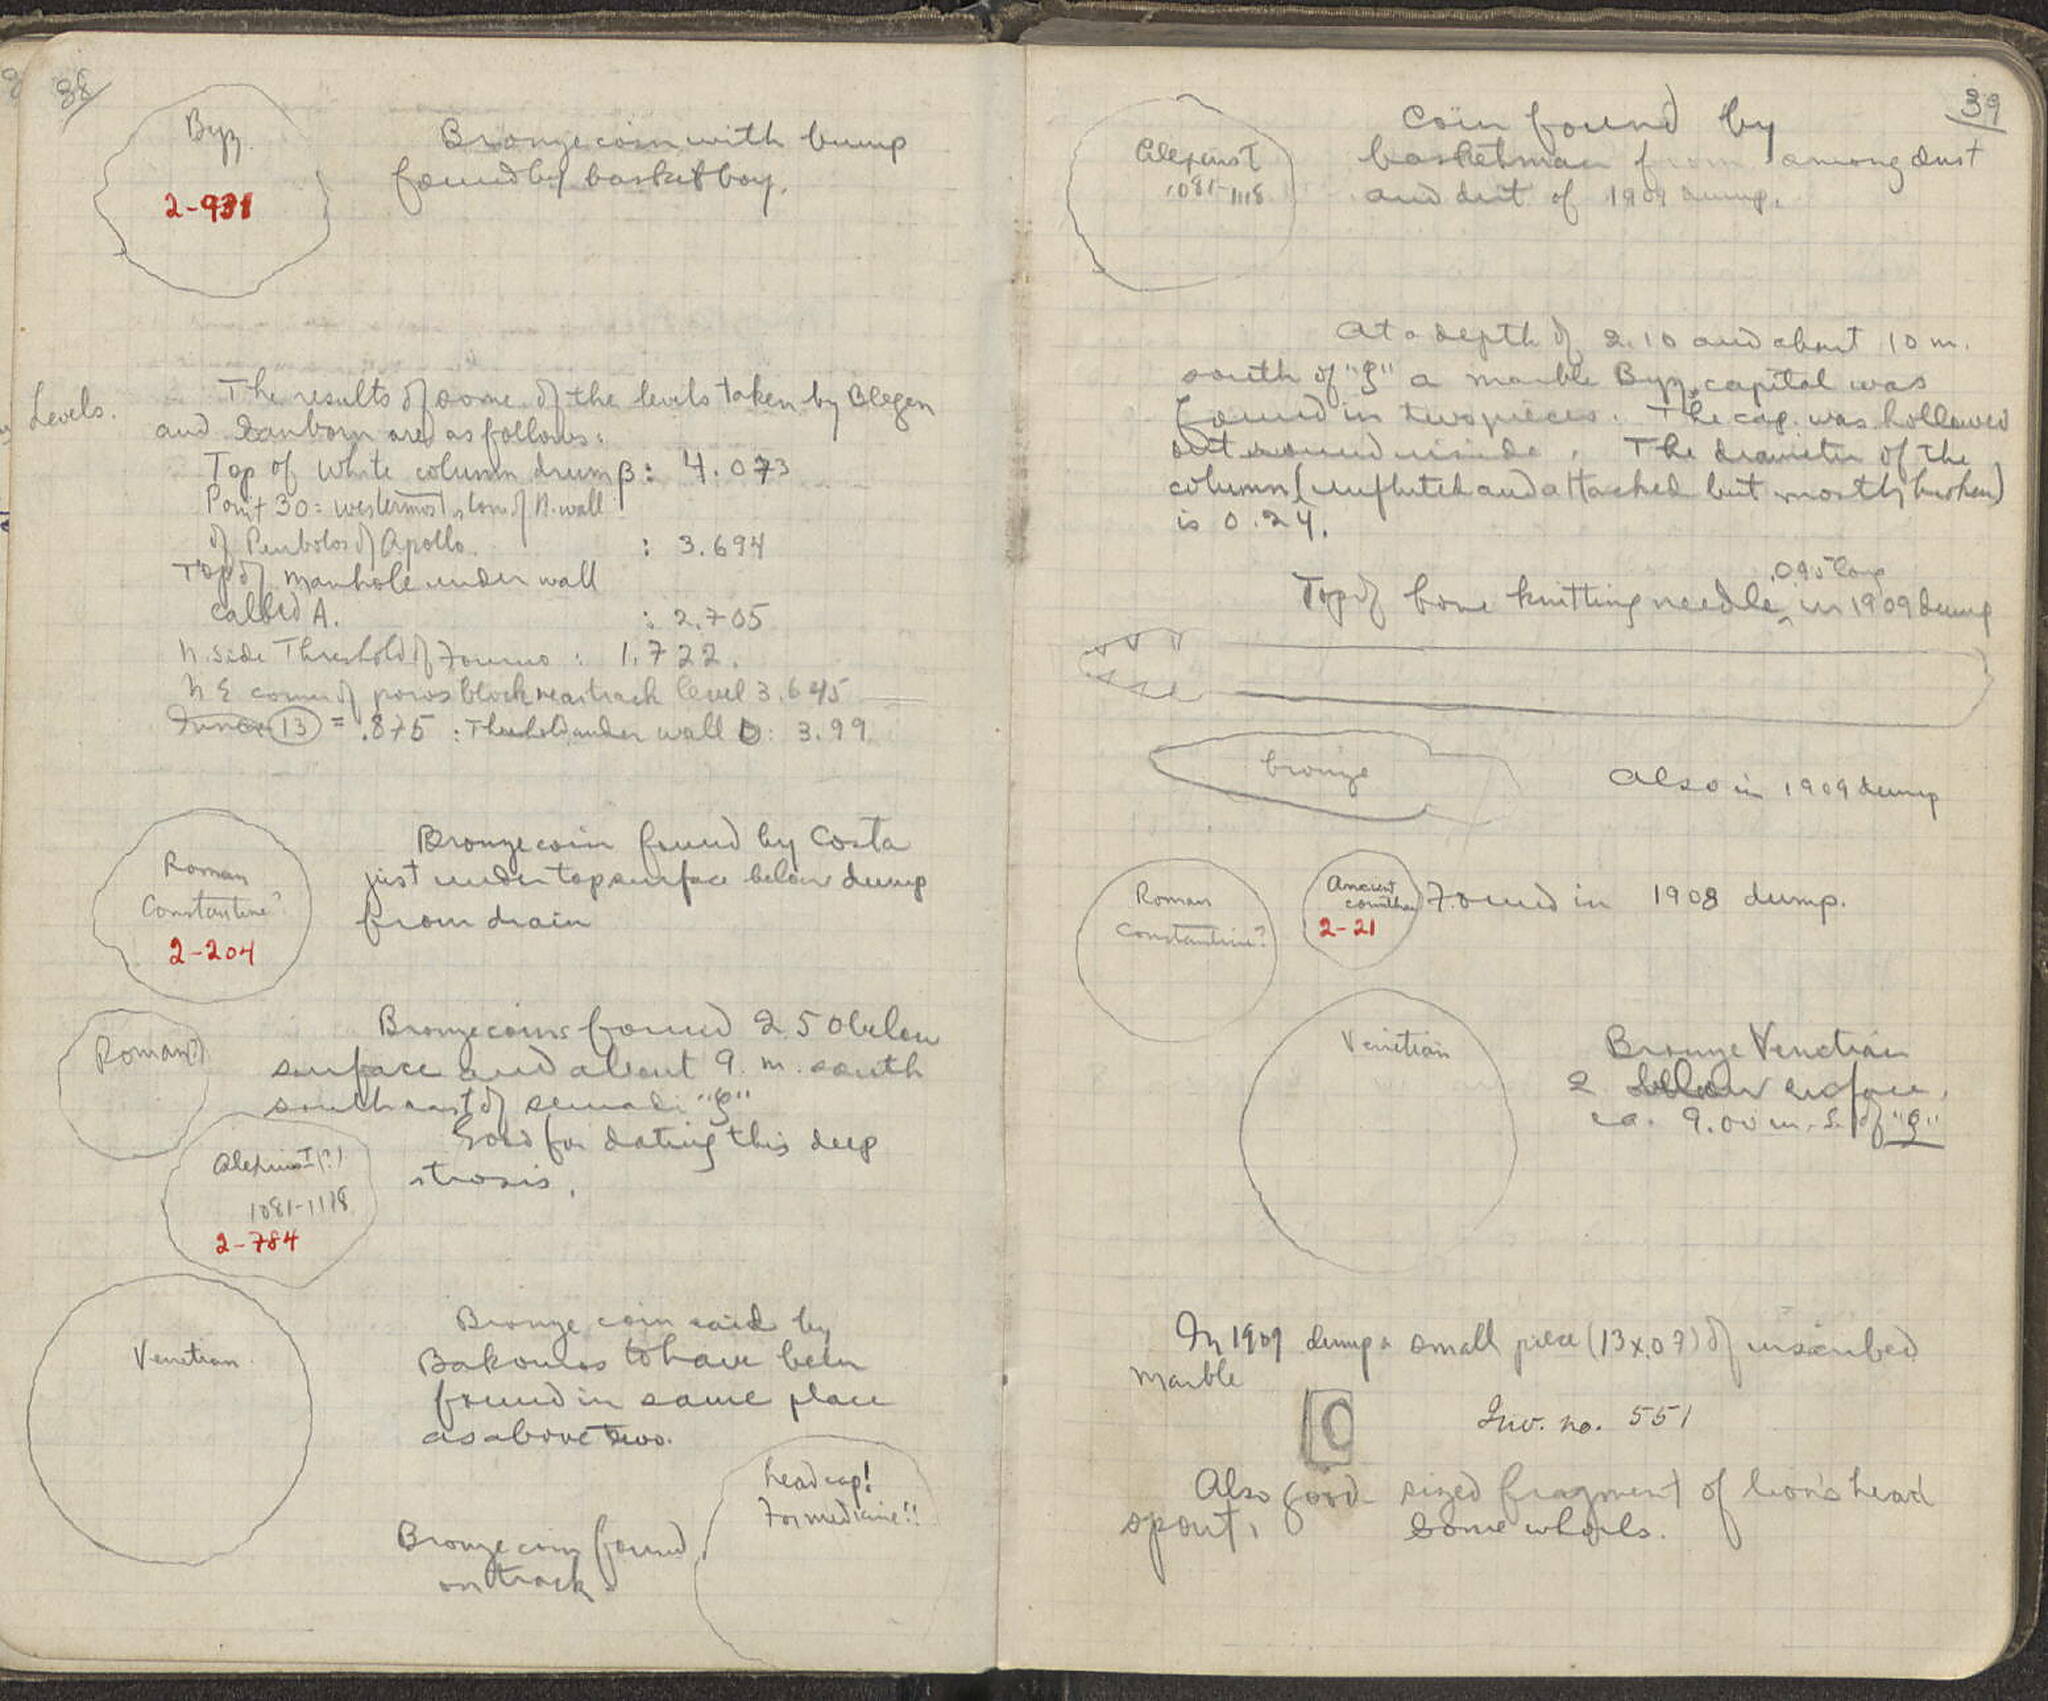 38
Byz.
2-931
Bronze coin with bump
found by basket boy.
Levels.
The results of some of the levels taken by Blegen
and Sanborn are as follows:
Top of white column drum β: 4.073
Point 30 = westernmost stone of N. wall
of Peribolos of Apollo. : 3.694
Top of manhole under wall
called A. : 2.705
N. side Threshold of Fourno : 1.722.
N E corner of poros block near track level 3.645
13 = .875 : Threshold under wall D: 3.99
Roman
Constantine?
2-204
Bronze coin found by Costa
just under top surface below dump
from drain
Roman(?)
Bronze coins found 2.50 below
surface and about 9. m. south
southeast of "ϛ"
Good for dating this deep
strosis.
Alexius I (?)
1081-1118
2-784
Venetian.
Bronze coin said by
Bakouros to have been
found in same place
as above two.
head cap!
For medicine!!
Bronze coin found
on track.
39
Alexius I
1081-1118
Coin found by
basketman from among dust
and dirt of 1909 dump.
At a depth of 2.10 and about 10 m.
south of "ϛ" a marble Byz. capital was
found in two pieces. The cap. was hollowed
out inside. The diameter of the
column (unfluted and attached but mostly broken)
is 0.24.
.095 long
Top of bone knitting needle ^ in 1909 dump
bronze
Also in 1909 dump
Roman
Constantine?
Ancient
Corinthian
2-21
Found in 1908 dump.
Venetian
Bronze Venetian
2 below surface.
ca. 9.00 m. S. of "ϛ"
In 1909 dump a small piece (13x.07) of inscribed
marble
Inv. no. 551
Also good-sized fragment of lion's head
spout. Some whorls.